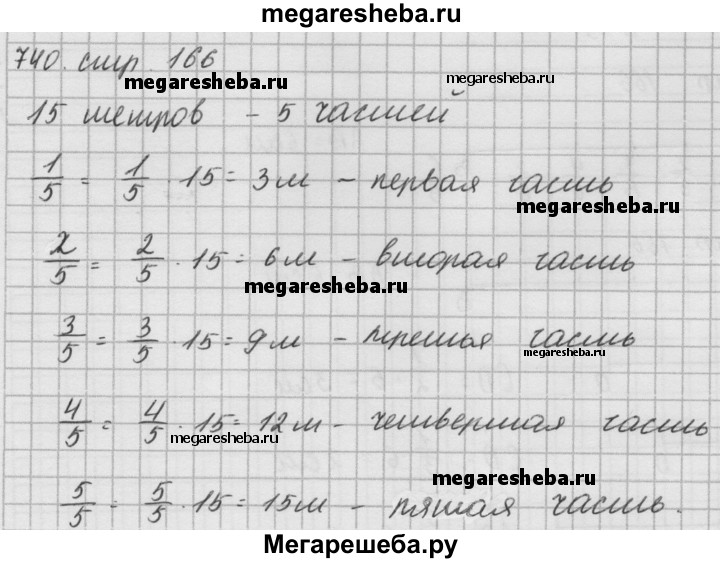 megaresheba.ru
740. стр. 166
megaresheba.ru
megaresheba.ru
15 метров - 5 частей
1/5 = 1/5 · 15 = 3 м - первая часть
megaresheba.ru
2/5 = 2/5 · 15 = 6 м - вторая часть
megaresheba.ru
3/5 = 3/5 · 15 = 9 м - третья часть
megaresheba.ru
4/5 = 4/5 · 15 = 12 м - четвертая часть
megaresheba.ru
megaresheba.ru
5/5 = 5/5 · 15 = 15 м - пятая часть.
Мегарешеба.ру